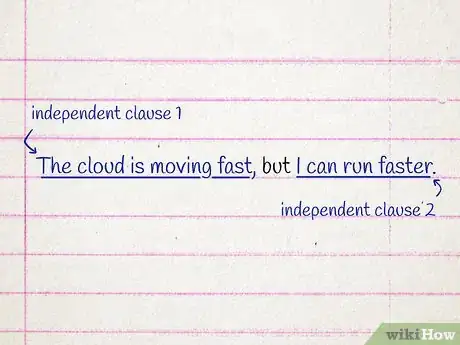 independent clause 1
The cloud is moving fast, but I can run faster.
independent clause 2
wikiHow